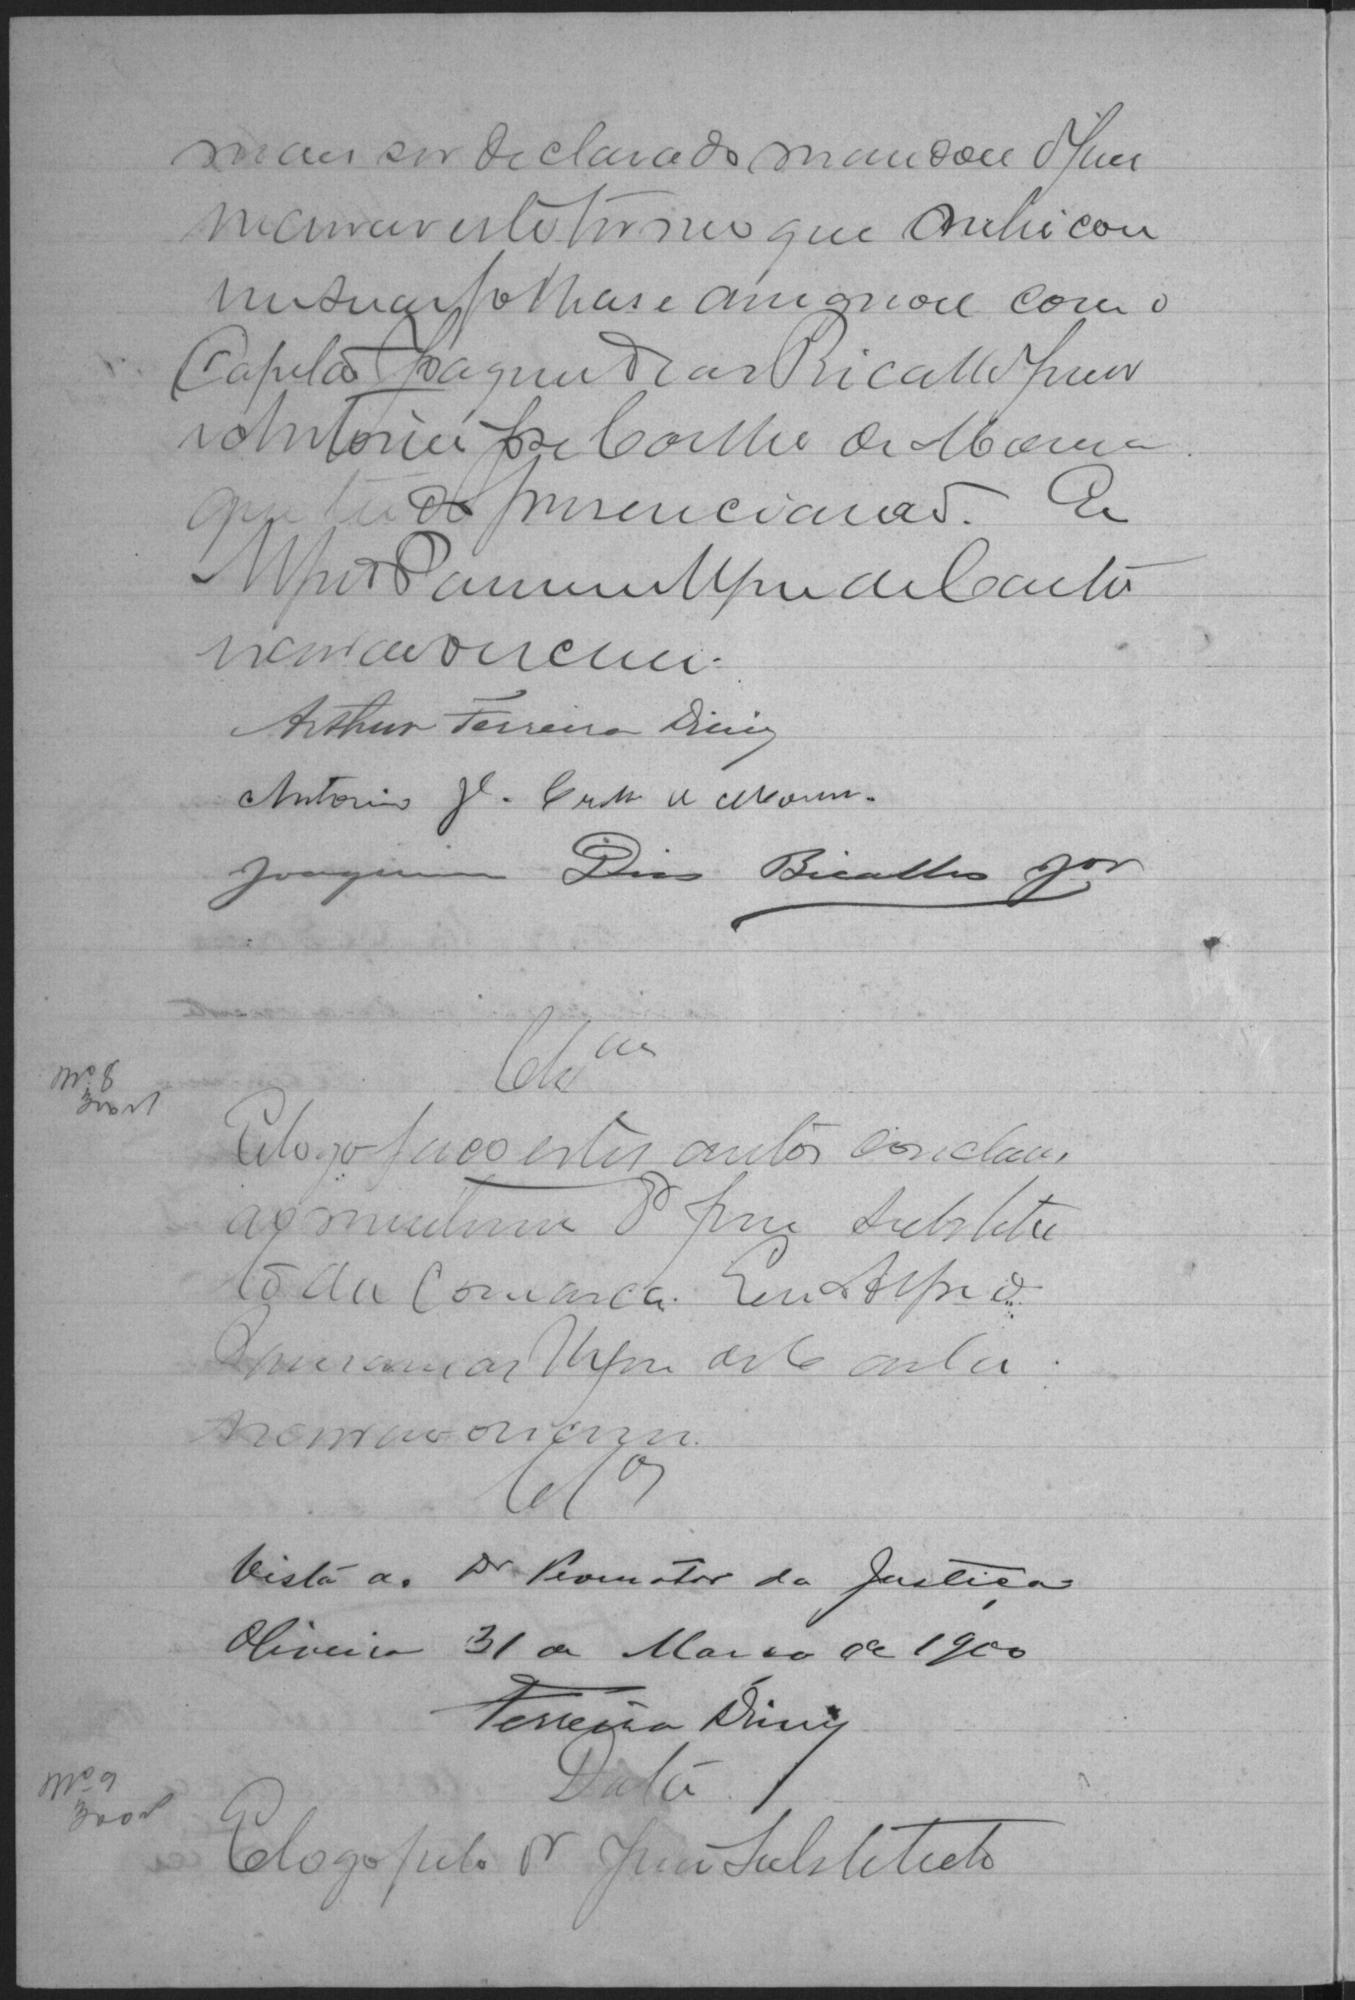 mais ser declarado mandou o Juiz
lavrar este termo que rubricou
em suas folhas e assignou com o
Capitão Joaquim Dias Bicalho Junior
e Antonio José Coelho de Moura
que tudo presenciarão. Eu
Alfredo
escrevi.
Arthur Ferreira Diniz
Antonio Jé. Coelho de Moura.
Joaquim Dias Bicalho Jor
Clsam
Nº 8
300rs
E logo faço estes autos conclusos
ao meritissimo Dr Juiz Substitu
to da Comarca. Eu Alfredo
escrevi.
Clos
Vista ao Dr Promotor da Justiça
Oliveira 31 de Março de 1900
Ferreira Diniz
Data
Nº 9
300rs
E logo pelo Dr Juiz Substituto